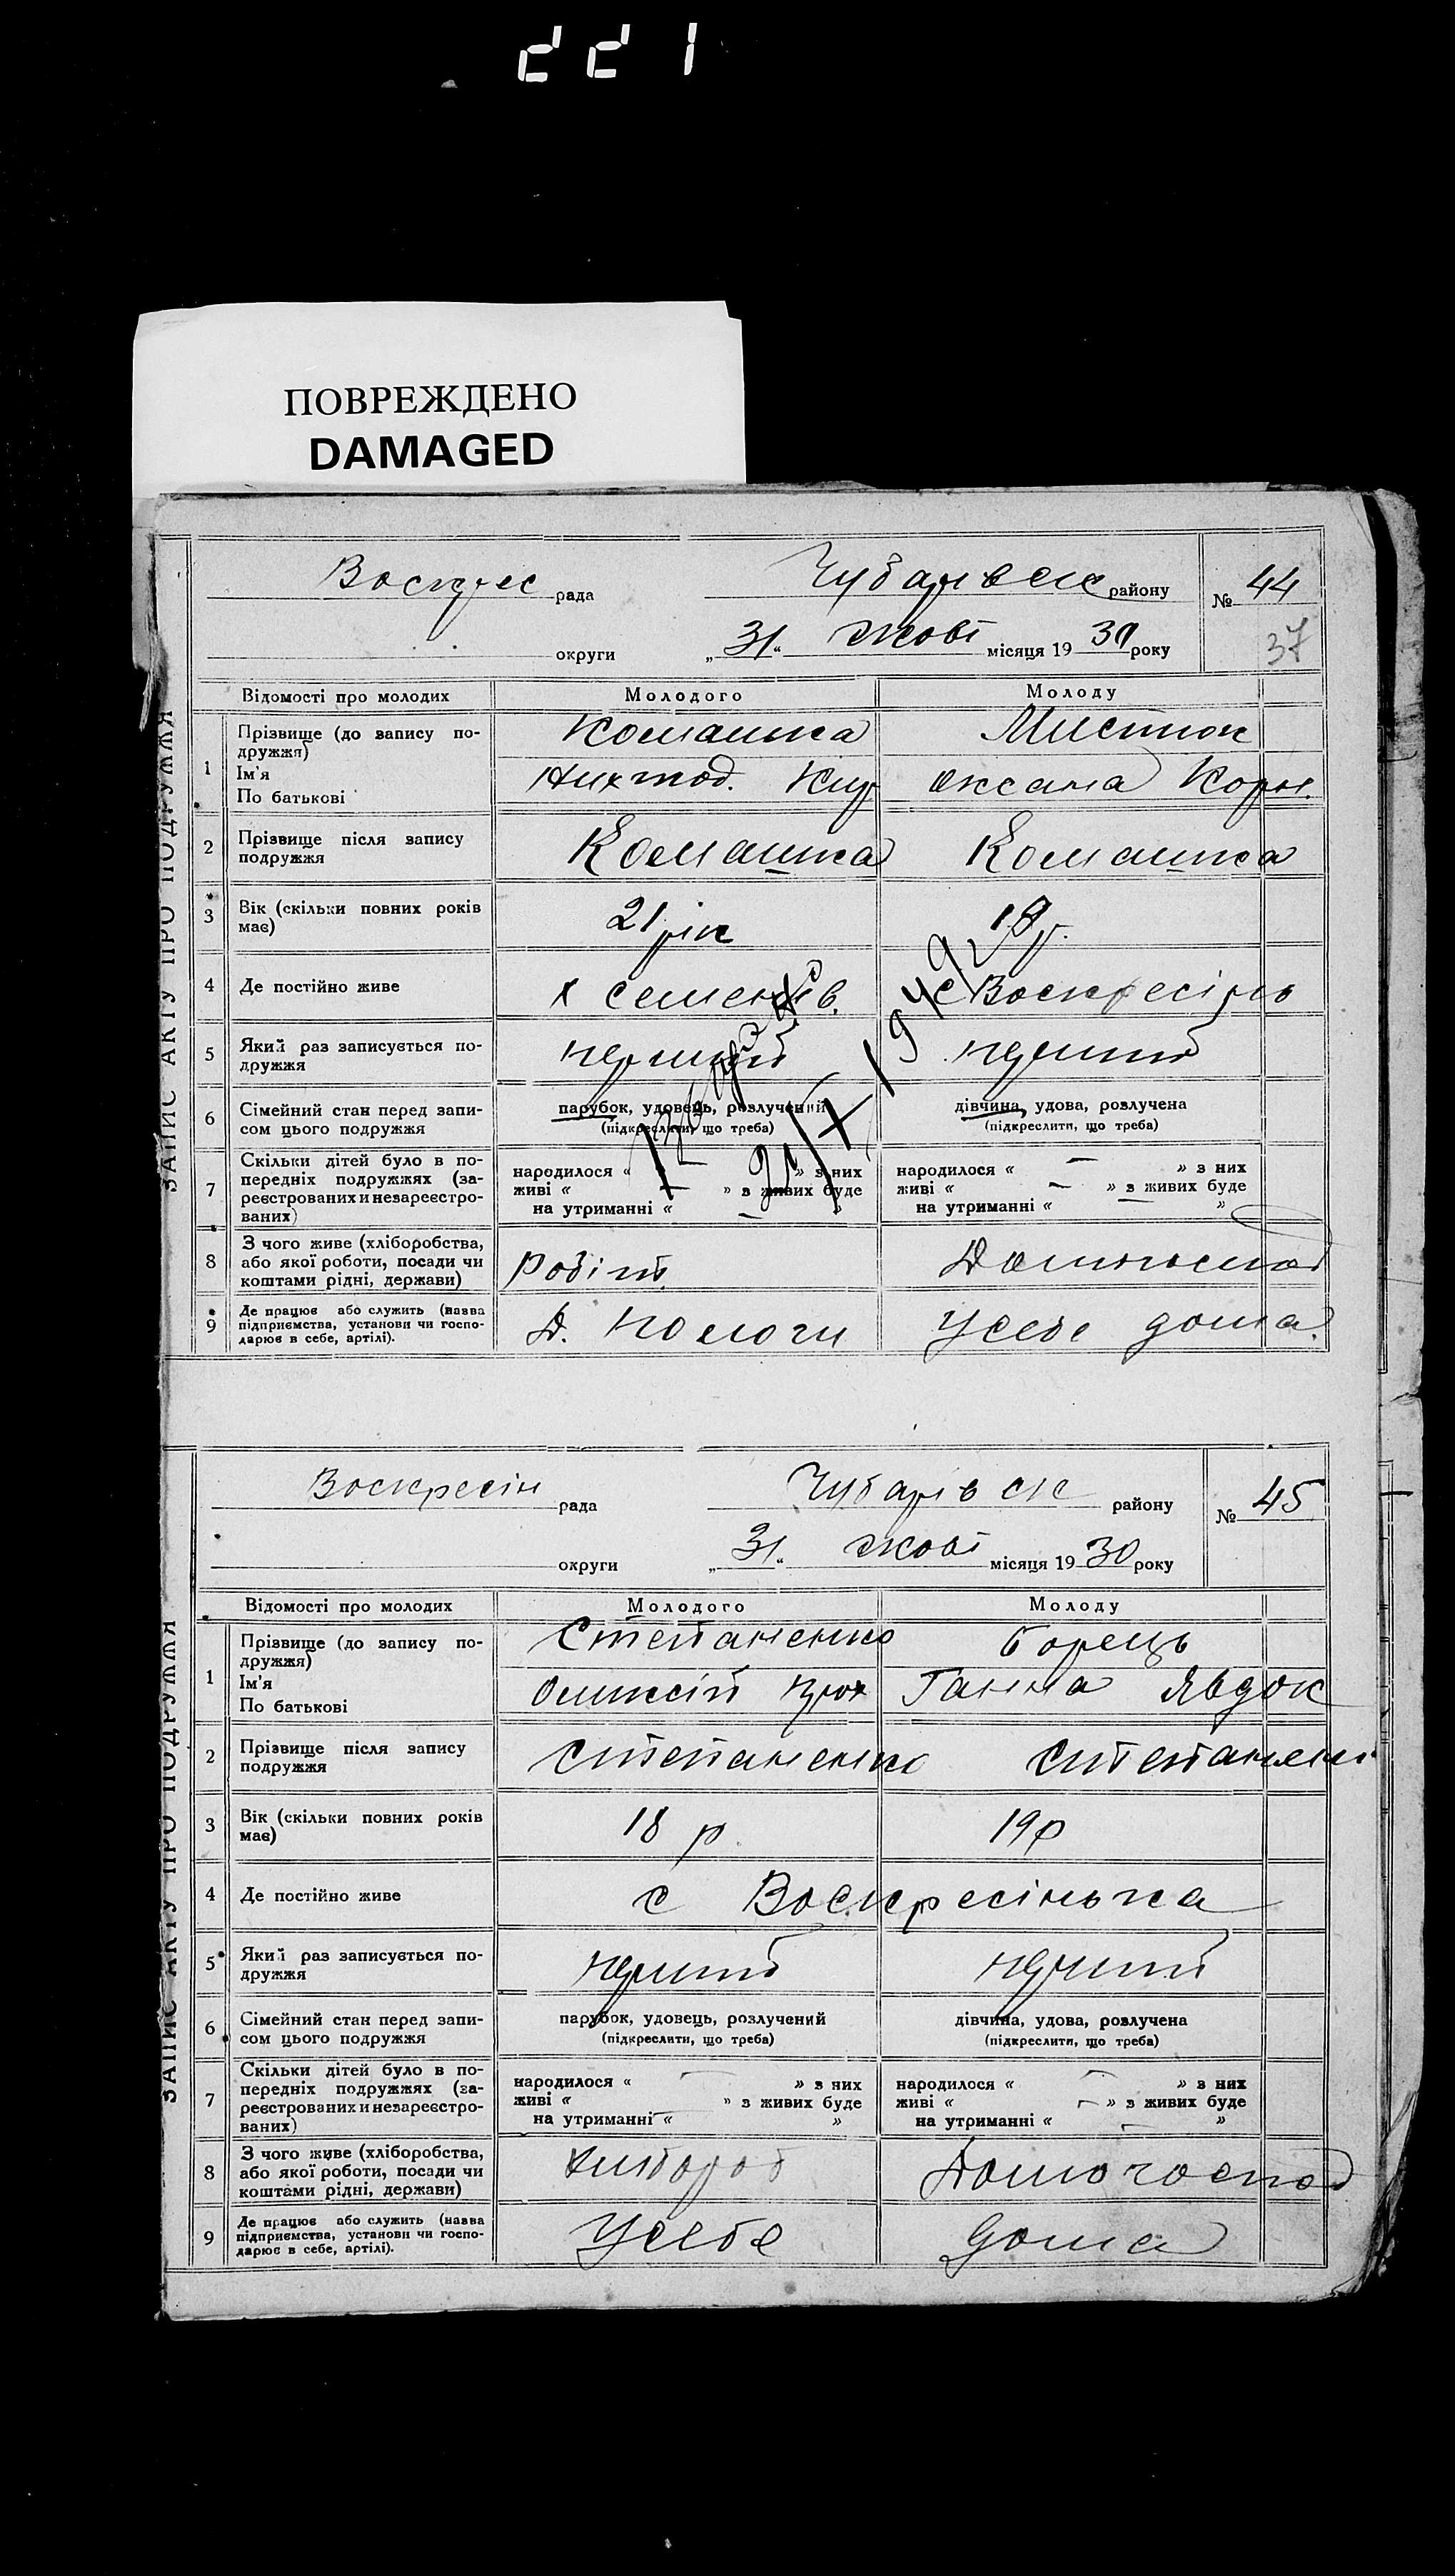 221
ПОВРЕЖДЕНО
DAMAGED
ЗАПИС АКТУ ПРО ПОДРУЖЖЯ
Воскрес рада Чубарівск району № 44
округи „31“ жовт місяця 1930 року 37
Відомості про молодих Молодого Молоду
1 Прізвище (до запису по-
дружжя) Комашка
Ім'я Оксана Корн.
По батькові
2 Прізвище після запису Комашка Комашка
подружжя
3 Вік (скільки повних років 21 рік
має)
4 Де постійно живе х Семенів. с Воскресінь
5 Який раз записується по- перший перший
дружжя
6 Сімейний стан перед запи- парубок, удовець, розлучений дівчина, удова, розлучена
сом цього подружжя (підкреслити, що треба) (підкреслити, що треба)
7 Скільки дітей було в по- народилося « » з них народилося « — » з них
передніх подружжях (за- живі « » з живих буде живі « — » з живих буде
реєстрованих и незареєстро- на утриманні « — » на утриманні « — »
ваних)
8 З чого живе (хліборобства, Робітн.
або якої роботи, посади чи Домогоспод
коштами рідні, держави)
9 Де працює або служить (назва Д. Пологи Усебе дома.
підприємства, установи чи госпо-
дарює в себе, артілі).
1949
ЗАПИС АКТУ ПРО ПОДРУЖЖЯ
Воскресін рада Чубарівск району № 45
округи „31“ жовт місяця 1930 року
Відомості про молодих Молодого Молоду
1 Прізвище (до запису по- Степаненко Борець
дружжя)
Ім'я Олексій Ганна Явдок
По батькові
2 Прізвище після запису Степаненко Степаненк
подружжя
3 Вік (скільки повних років 18 р. 19 р
має)
4 Де постійно живе с Воскресінька
5 Який раз записується по- перший перший
дружжя
6 Сімейний стан перед запи- парубок, удовець, розлучений дівчина, удова, розлучена
сом цього подружжя (підкреслити, що треба) (підкреслити, що треба)
7 Скільки дітей було в по- народилося « — » з них народилося « — » з них
передніх подружжях (за- живі « » з живих буде живі « — » з живих буде
реєстрованих и незареєстро- на утриманні — « » на утриманні « — »
ваних)
8 З чого живе (хліборобства, Хлібороб Домогоспод
або якої роботи, посади чи
коштами рідні, держави)
9 Де працює або служить (назва Усебе Дома
підприємства, установи чи госпо-
дарює в себе, артілі).